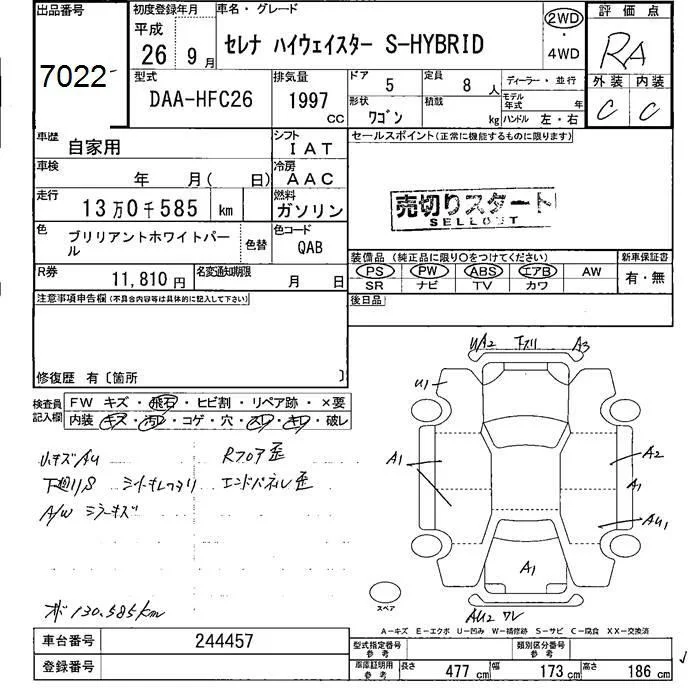 出品番号 初度登録年月 車名・グレード 2WD 評価点
7022 平成 26年 9月 セレナ ハイウェイスター S-HYBRID ・ 4WD RA
型式 排気量 ドア 5 定員 8人 ディーラー・並行 外装 内装
DAA-HFC26 1997 CC 形状 ワゴン 積載 kg モデル年式 年 ハンドル 左・右 C C
車歴 自家用 シフト IAT セールスポイント(正常に機能するものに限ります)
車検 年 月( 日) 冷房 AAC
走行 13万0千585 km 燃料 ガソリン 売切りスタート
SELLOUT
色 ブリリアントホワイトパール 色替 色コード QAB
装備品 (純正品に限り○をつけてください) 新車保証書
PS PW ABS エアB AW 有・無
SR ナビ TV カワ
R券 11,810円 名変通知期限 月 日 後日品
注意事項申告欄 (不具合内容等は具体的に記入して下さい)
修復歴 有〔箇所 〕
検査員記入欄 FW キズ・飛石・ヒビ割・リペア跡・×要
内装 キズ・汚レ・コゲ・穴・スレ・キレ・破レ
Rフロア歪
エンドパネル歪
A/W ミラーキズ
130.585km
UA2 下スリ A3
U1
A1 A2
A1
AU1
A1
AU2 ワレ
スペア
A-キズ E-エクボ U-凹み W-補修跡 S-サビ C-腐食 XX-交換済
車台番号 244457 型式指定番号 参考 類別区分番号 参考
登録番号 車庫証明用 参考 長さ 477 cm 幅 173 cm 高さ 186 cm